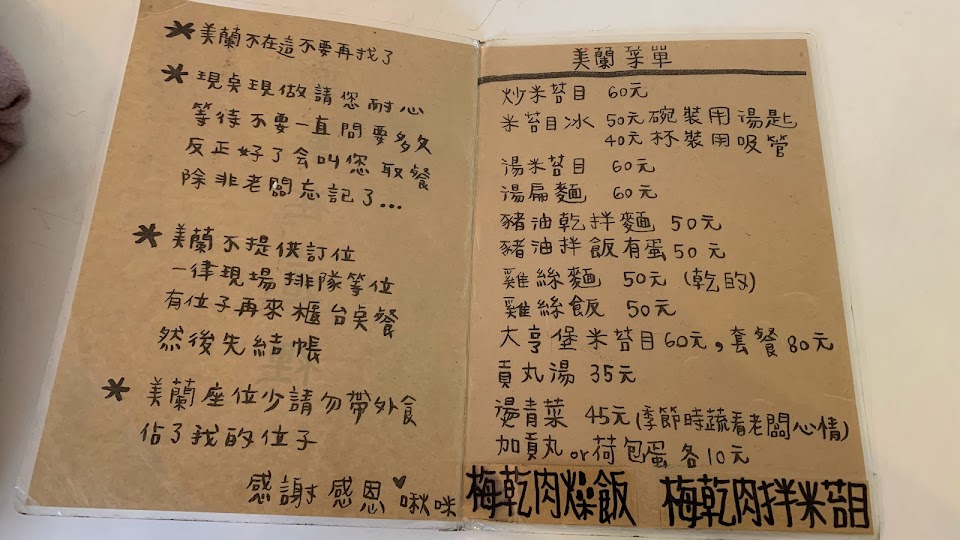 * 美蘭不在這不要再找了
* 現桌現做請您耐心
等待不要一直問要多久
反正好了會叫您取餐
除非老闆忘記了...
* 美蘭不提供訂位
一律現場排隊等位
有位子再來櫃台桌餐
然後先結帳
* 美蘭座位少請勿帶外食
佔了我的位子
感謝感恩♥啾咪
美蘭菜單
炒米苔目 60元
米苔目冰 50元碗裝用湯匙
40元杯裝用吸管
湯米苔目 60元
湯扁麵 60元
豬油乾拌麵 50元
豬油拌飯有蛋50元
雞絲麵 50元 (乾的)
雞絲飯 50元
大亨堡米苔目60元,套餐80元
貢丸湯 35元
燙青菜 45元(季節時蔬看老闆心情)
加貢丸or荷包蛋 各10元
梅乾肉燥飯 梅乾肉拌米苔目